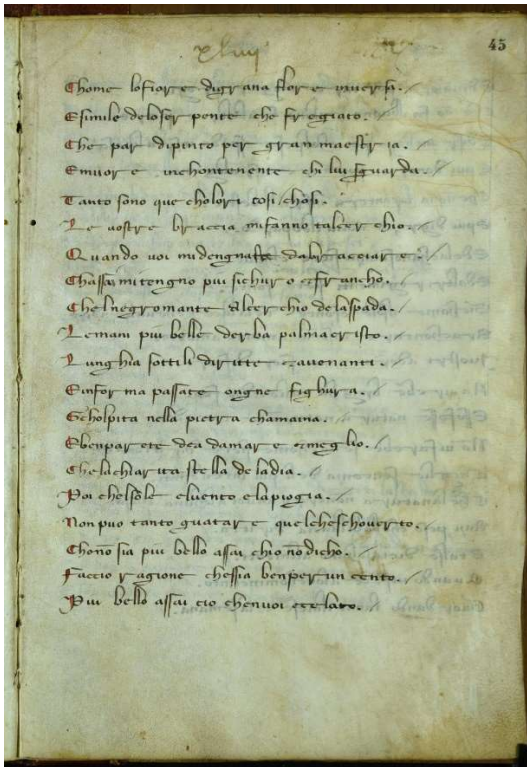 xliiij
45
Chome lofiore digrana flor e inver si.
Esimile deloser pente che fregiato.
Che par dipinto per gran maestria.
Emuor e inchontenente chi lui sguarda.
Tanto sono que cholori cosi chosi.
Le vostre braccia mifanno talcer chio.
Quando voi midengnate dabracciare.
Chassai mi tengno piu sichuro effrancho.
Chelnegromante alcer chio delaspada.
Lemani piu belle derba palmacristo.
Lunghia sottili diritte avonanti.
Einforma passate ongne fighura.
Scholpita nella pietra chamaina.
Ebenparete dea damar e meglio.
Chelichiarita stella deladia.
Poi chelsole eluento elapiogia.
Non puo tanto guatare quelchescoverto.
Chonō sia piu bello assai chio nō dicho.
Faccio ragione chessia benper un cento.
Piu bello assai cio chenvoi celato.